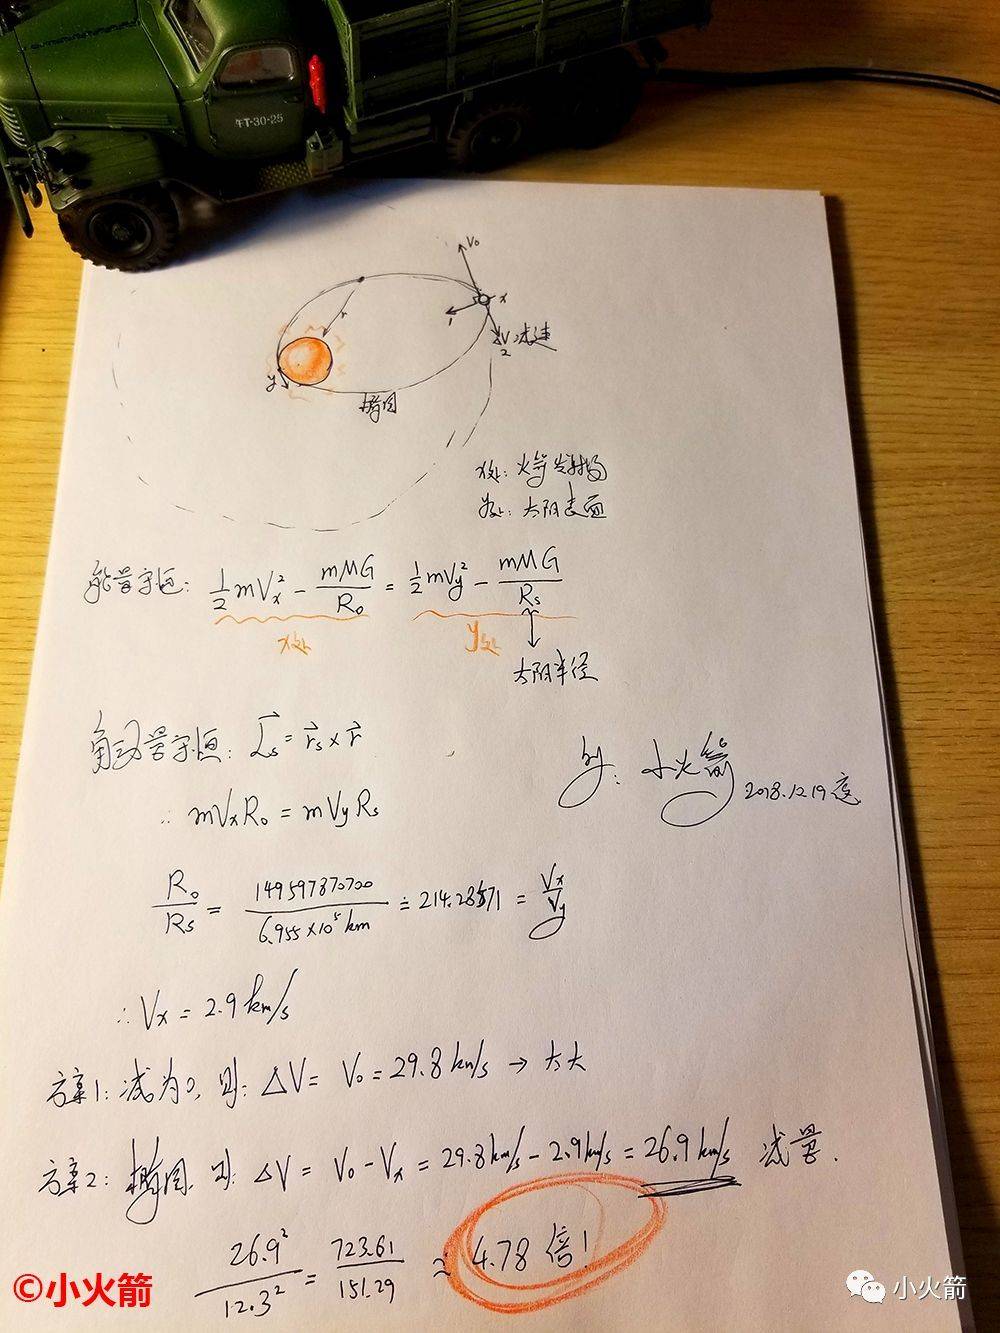 午T-30-25
V₀
x
1
r
ΔV 减速
2
y
椭圆
x处: 火箭发射场
y处: 太阳表面
能量守恒: ½mVₓ² - mMG/R₀ = ½mVy² - mMG/Rs
x处 y处
太阳半径
角动量守恒: L⃗s = r⃗s × r⃗
∴ mVxR₀ = mVyRs
by: 小火箭 2018.12.19夜
R₀/Rs = 149597870700/6.955×10⁵km ≐ 214.28571 = Vx/Vy
∴ Vx = 2.9 km/s
方案1: 减为0, 则: ΔV = V₀ = 29.8 km/s → 太大
方案2: 椭圆, 则: ΔV = V₀ - Vx = 29.8 km/s - 2.9 km/s = 26.9 km/s 减量.
26.9²/12.3² = 723.61/151.29 ≈ 4.78 倍!
©小火箭
小火箭